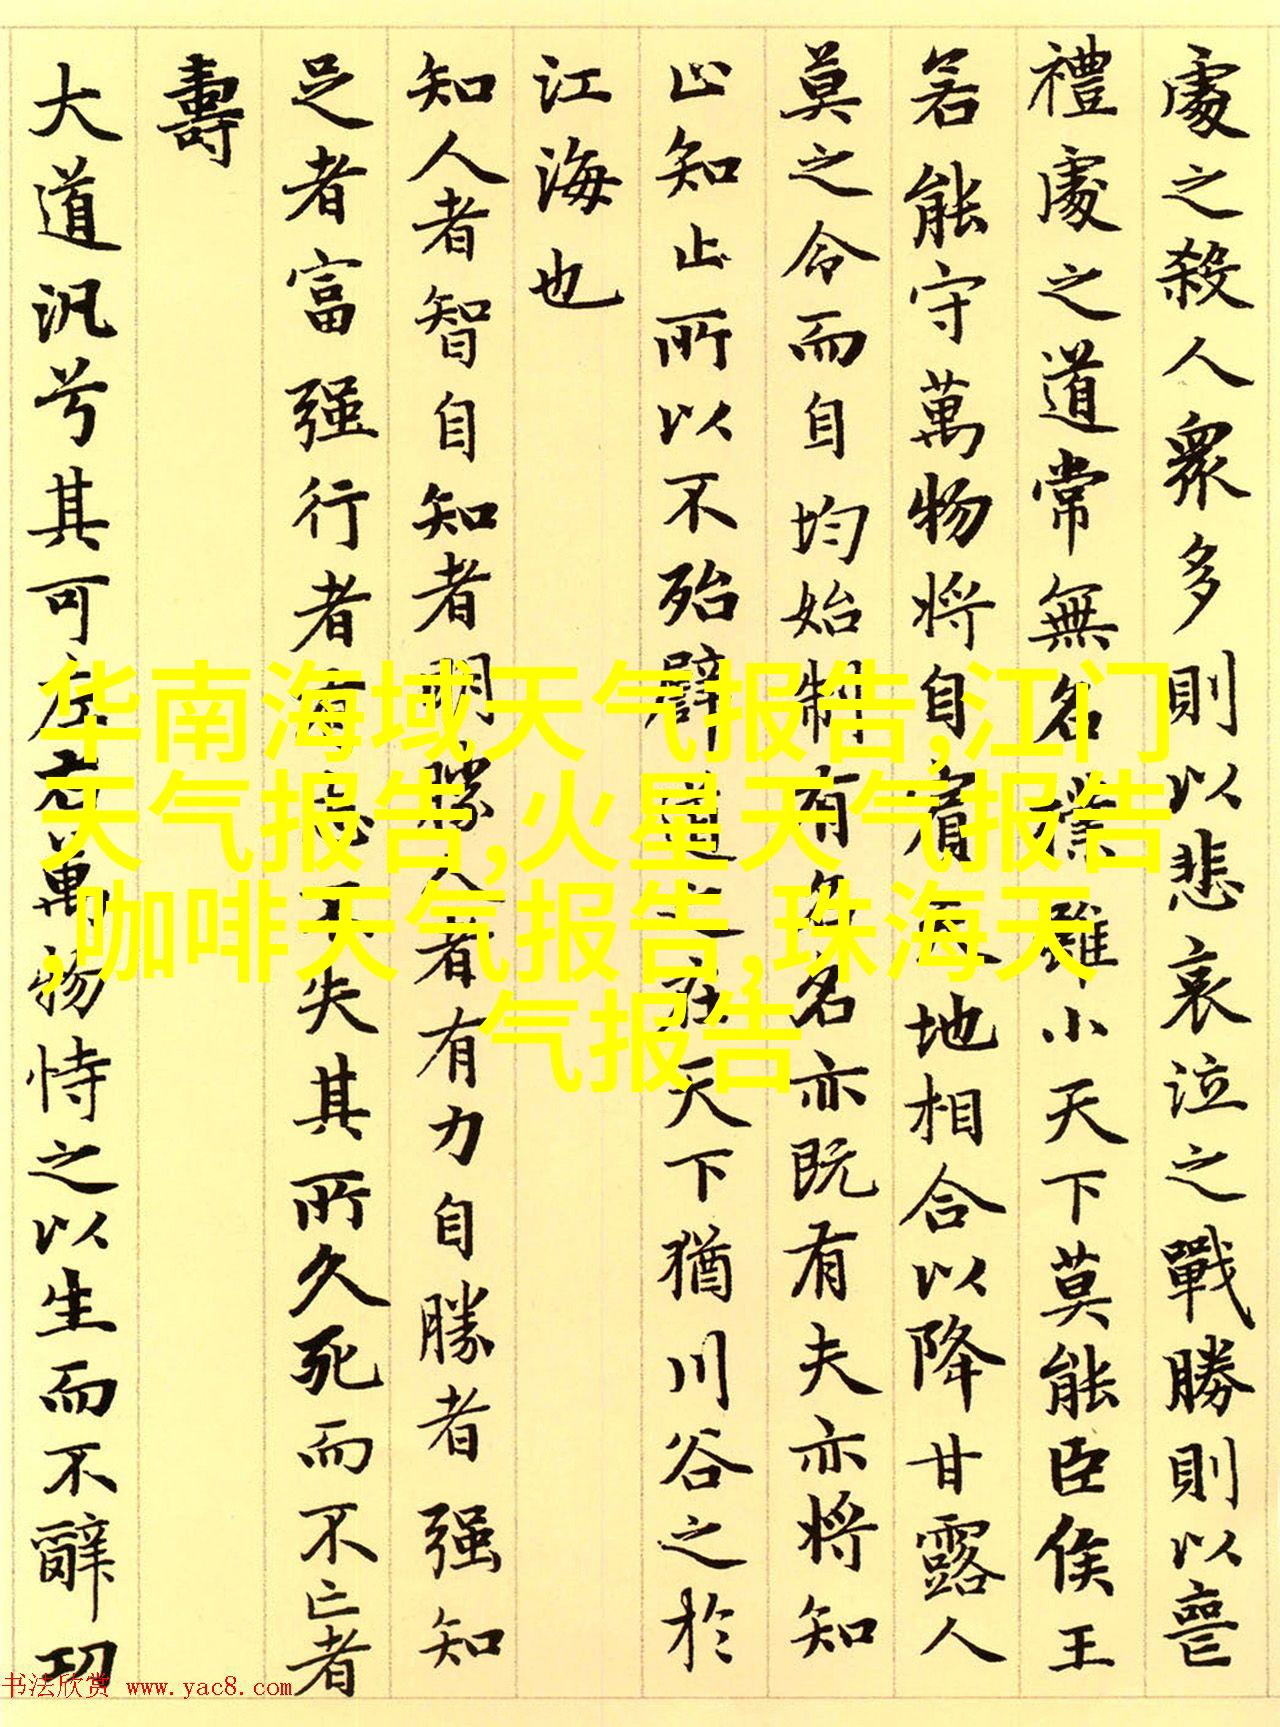 處之殺人衆多則以悲哀泣之戰勝則以喪
禮處之道常無名樸雖小天下莫能臣侯王
若能守萬物將自賓天地相合以降甘露人
莫之令而自均始制有名名亦既有夫亦將知
止知止所以不殆譬道之在天下猶川谷之於
江海也
知人者智自知者明勝人者有力自勝者强知
足者富强行者有志不失其所久死而不亡者
壽
大道汎兮其可左右萬物恃之以生而不辭功
华南海域天气报告,江门
天气报告,火星天气报告
,咖啡天气报告,珠海天
气报告
书法欣赏 www.yac8.com